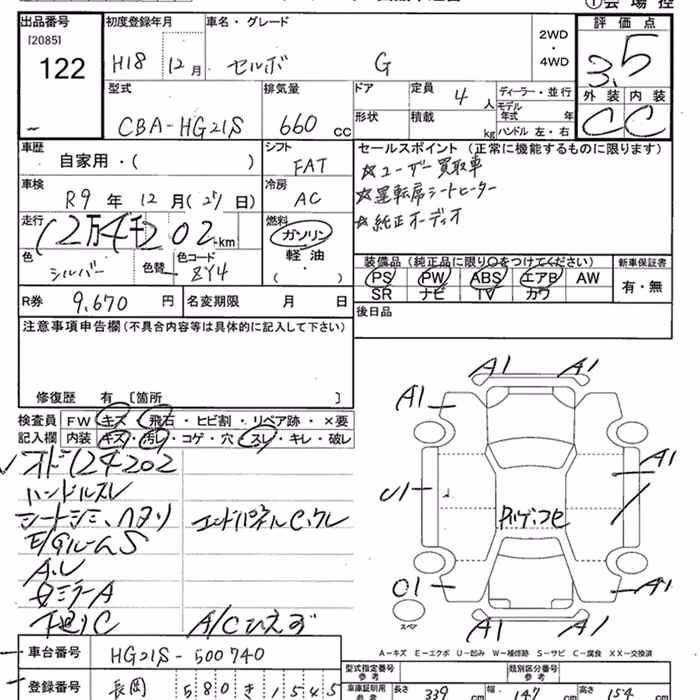 ①会場控
出品番号 初度登録年月 車名・グレード 評価点
[2085] 2WD
・
4WD
122 H18 12月 セルボ G 3.5
型式 排気量 ドア 定員 4 人 ディーラー・並行 外装 内装
モデル年式 年
CBA-HG21S 660 cc 形状 積載 kg ハンドル 左・右 C C
車歴 シフト セールスポイント (正常に機能するものに限ります)
自家用・( ) FAT ☆ユーザー買取車
車検 冷房 ☆運転席シートヒーター
R9年12月(27日) AC ☆純正オーディオ
走行 燃料
(2万4千202 km ガソリン
色 色替 色コード 軽油 装備品 (純正品に限り○をつけてください) 新車保証書
シルバー ZY4 ( ) PS PW ABS エアB AW 有・無
SR ナビ TV カワ
R券 9,670 円 名変期限 月 日 後日品
注意事項申告欄(不具合内容等は具体的に記入して下さい)
修復歴 有 [箇所 ]
検査員 FW キズ・飛石・ヒビ割・リペア跡・×要
記入欄 内装 キズ・汚レ・コゲ・穴・スレ・キレ・破レ
オド124202
ハンドルスレ
エンドパネルC、クレ
E/GルームS
A.レ
A/Cひえず
A1 A1
A1
A1
U1
U1 A1
A1 A1
スペア
A-キズ E-エクボ U-凹み W-補修跡 S-サビ C-腐食 XX-交換済
車台番号 HG21S-500740
型式指定番号 参考 類別区分番号 参考
登録番号 長岡 580 き 1545
車庫証明用 参考 長さ 339 cm 幅 147 cm 高さ 154 cm